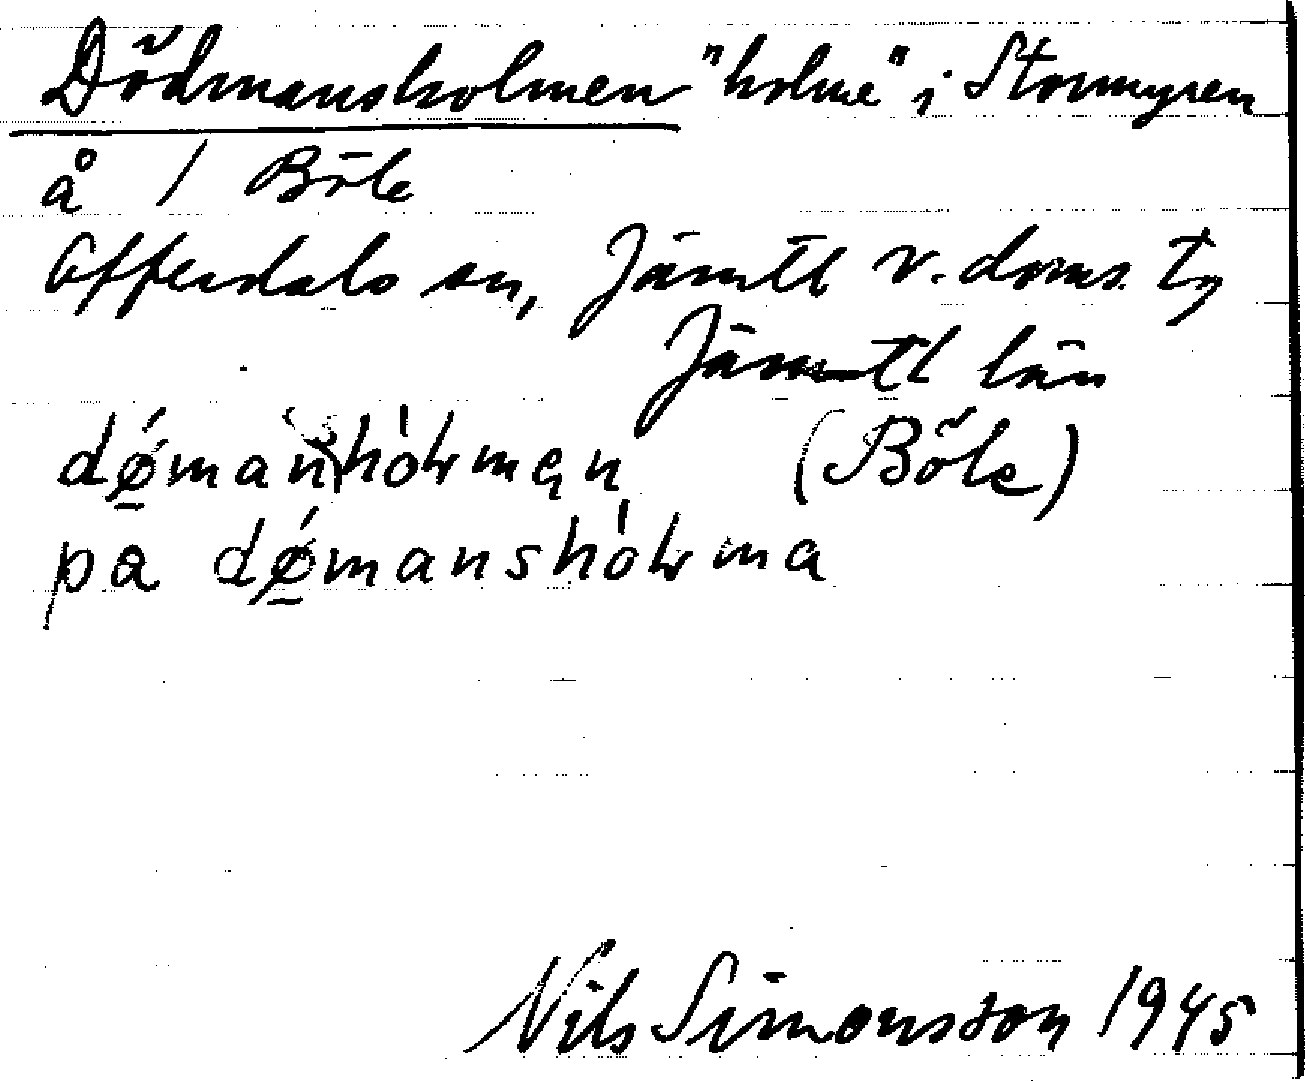 Dödmansholmen "holme" i Stormyren
å 1 Böle
Offerdals sn, Jämtl v. doms. tg
Jämtl län
dǿ̱manshòƚmęn (Böle)
pa dǿ̱manshòƚma
Nils Simonsson 1945